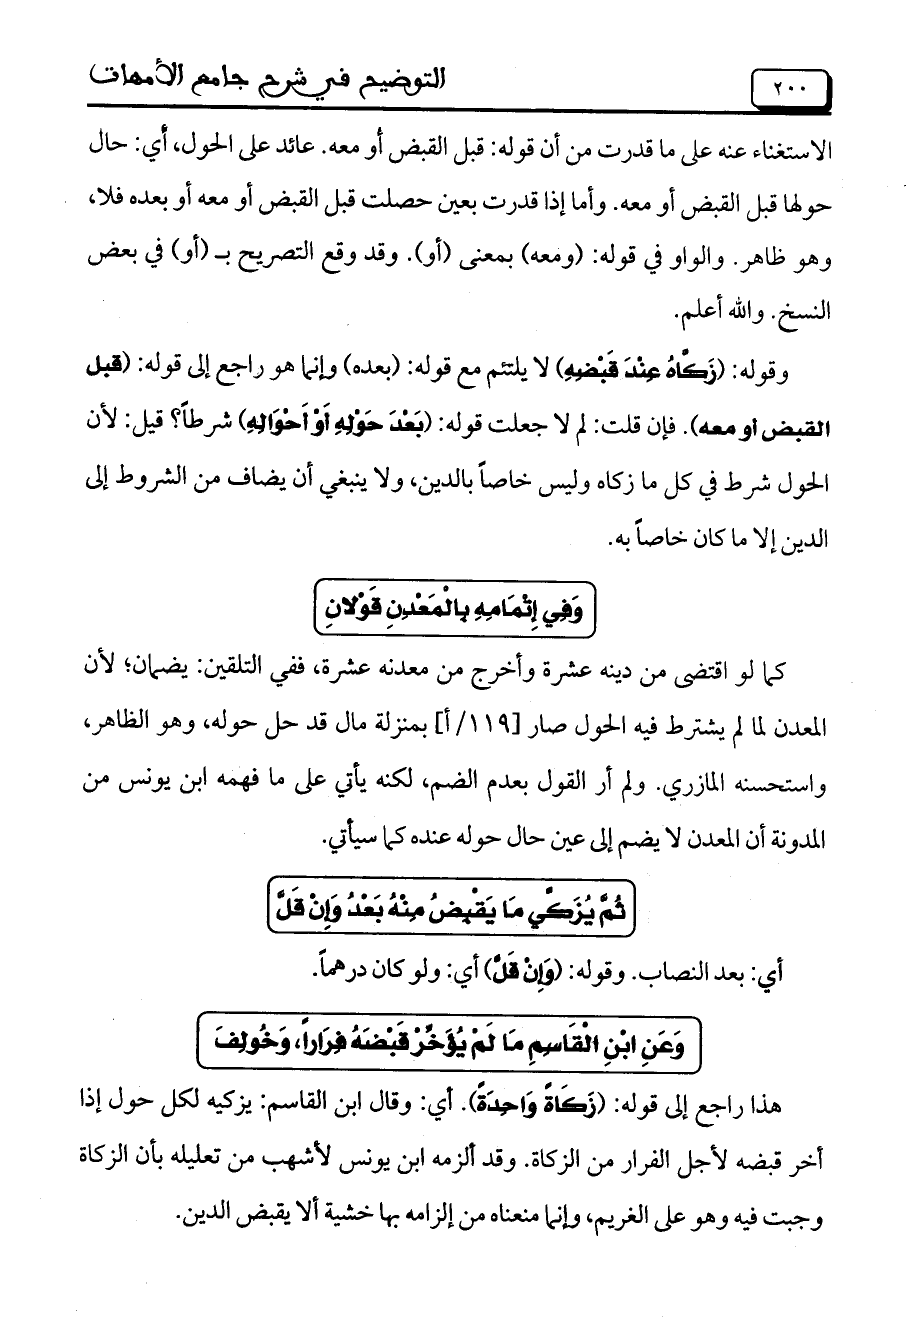 ٢٠٠
التوضيح في شرح جامع الأمهات
الاستغناء عنه على ما قدرت من أن قوله: قبل القبض أو معه. عائد على الحول، أي: حال
حولها قبل القبض أو معه. وأما إذا قدرت بعين حصلت قبل القبض أو معه أو بعده فلا،
وهو ظاهر. والواو في قوله: (ومعه) بمعنى (أو). وقد وقع التصريح بـ (أو) في بعض
النسخ. والله أعلم.
وقوله: (زَكَّاهُ عِنْدَ قَبْضِهِ) لا يلتئم مع قوله: (بعده) وإنما هو راجع إلى قوله: (قبل
القبض أو معه). فإن قلت: لم لا جعلت قوله: (بَعْدَ حَوْلِهِ أَوْ أَحْوَالِهِ) شرطاً؟ قيل: لأن
الحول شرط في كل ما زكاه وليس خاصاً بالدين، ولا ينبغي أن يضاف من الشروط إلى
الدين إلا ما كان خاصاً به.
وَفِي إِتْمَامِهِ بِالْمَعْدِنِ قَوْلانِ
كما لو اقتضى من دينه عشرة وأخرج من معدنه عشرة، ففي التلقين: يضمان؛ لأن
المعدن لما لم يشترط فيه الحول صار [١١٩/ أ] بمنزلة مال قد حل حوله، وهو الظاهر،
واستحسنه المازري. ولم أر القول بعدم الضم، لكنه يأتي على ما فهمه ابن يونس من
المدونة أن المعدن لا يضم إلى عين حال حوله عنده كما سيأتي.
ثُمَّ يُزَكِّي مَا يَقْبِضُ مِنْهُ بَعْدُ وَإِنْ قَلَّ
أي: بعد النصاب. وقوله: (وَإِنْ قَلَّ) أي: ولو كان درهماً.
وَعَنِ ابْنِ الْقَاسِمِ مَا لَمْ يُؤَخَّرْ قَبْضَهُ فِرَاراً، وَخُولِفَ
هذا راجع إلى قوله: (زَكَاةً وَاحِدَةً). أي: وقال ابن القاسم: يزكيه لكل حول إذا
أخر قبضه لأجل الفرار من الزكاة. وقد ألزمه ابن يونس لأشهب من تعليله بأن الزكاة
وجبت فيه وهو على الغريم، وإنما منعناه من إلزامه بها خشية ألا يقبض الدين.